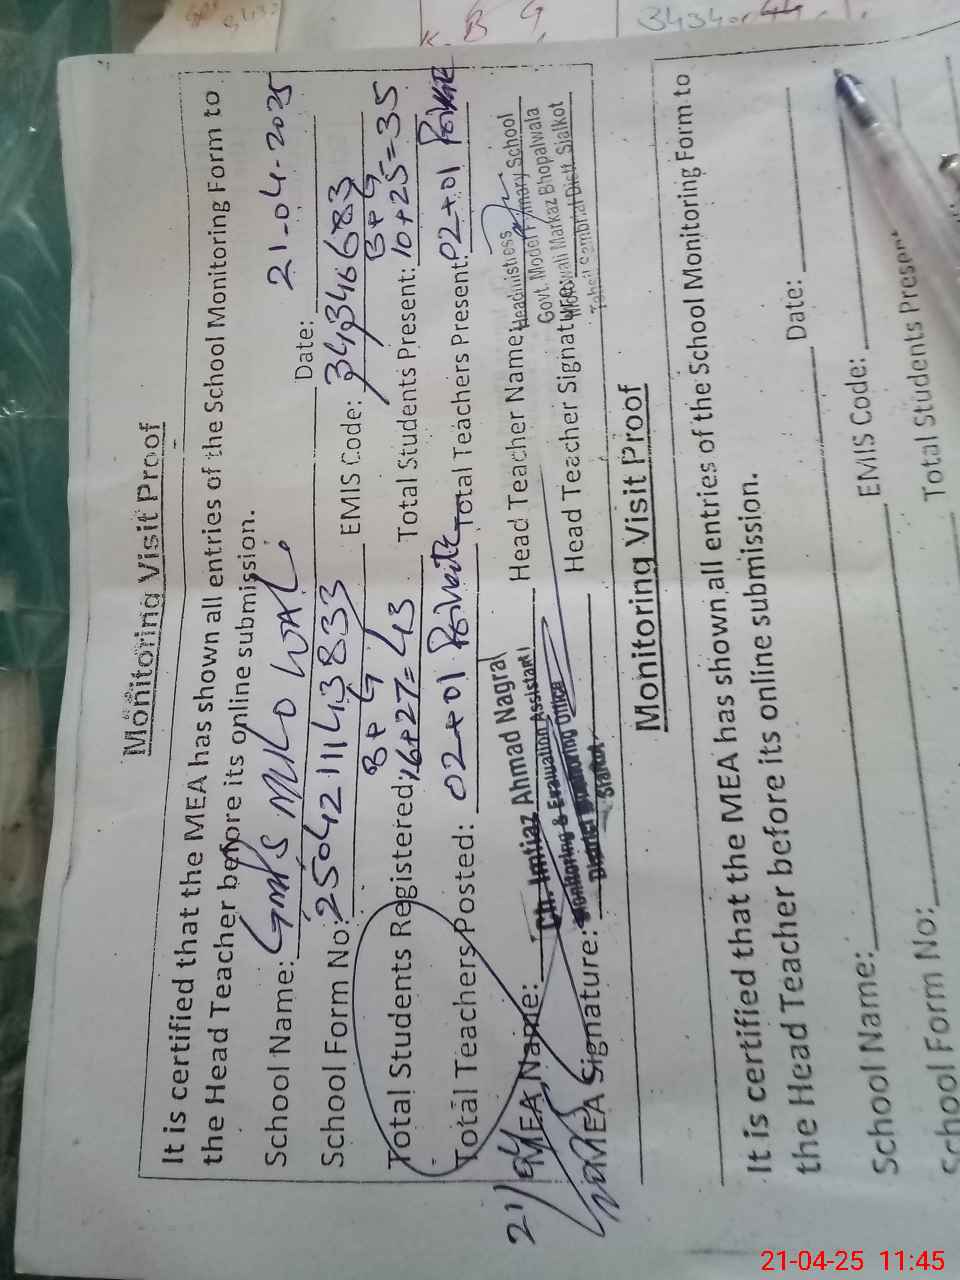 K. B G,
Monitoring Visit Proof
It is certified that the MEA has shown all entries of the School Monitoring Form to
the Head Teacher before its online submission.
School Name: GMPS Date: 21-04-2025
School Form No: EMIS Code: 34346683
B + G B + G
Total Students Registered: 16+27=43 Total Students Present: 10+25=35
Total Teachers Posted: 02+01 Private Total Teachers Present: 02+01 Private
MEA Name: Ch. Imtiaz Ahmad Nagral Head Teacher Name: Headmistress
Monitoring & Evaluation Assistant Govt. Model Primary School
MEA Signature: District Monitoring Office Head Teacher Signature: Markaz Bhopalwala
Sialkot Tehsil Sambrial Distt. Sialkot
21/04
Monitoring Visit Proof
It is certified that the MEA has shown all entries of the School Monitoring Form to
the Head Teacher before its online submission.
School Name: Date:
School Form No: EMIS Code:
Total Students Present
21-04-25 11:45